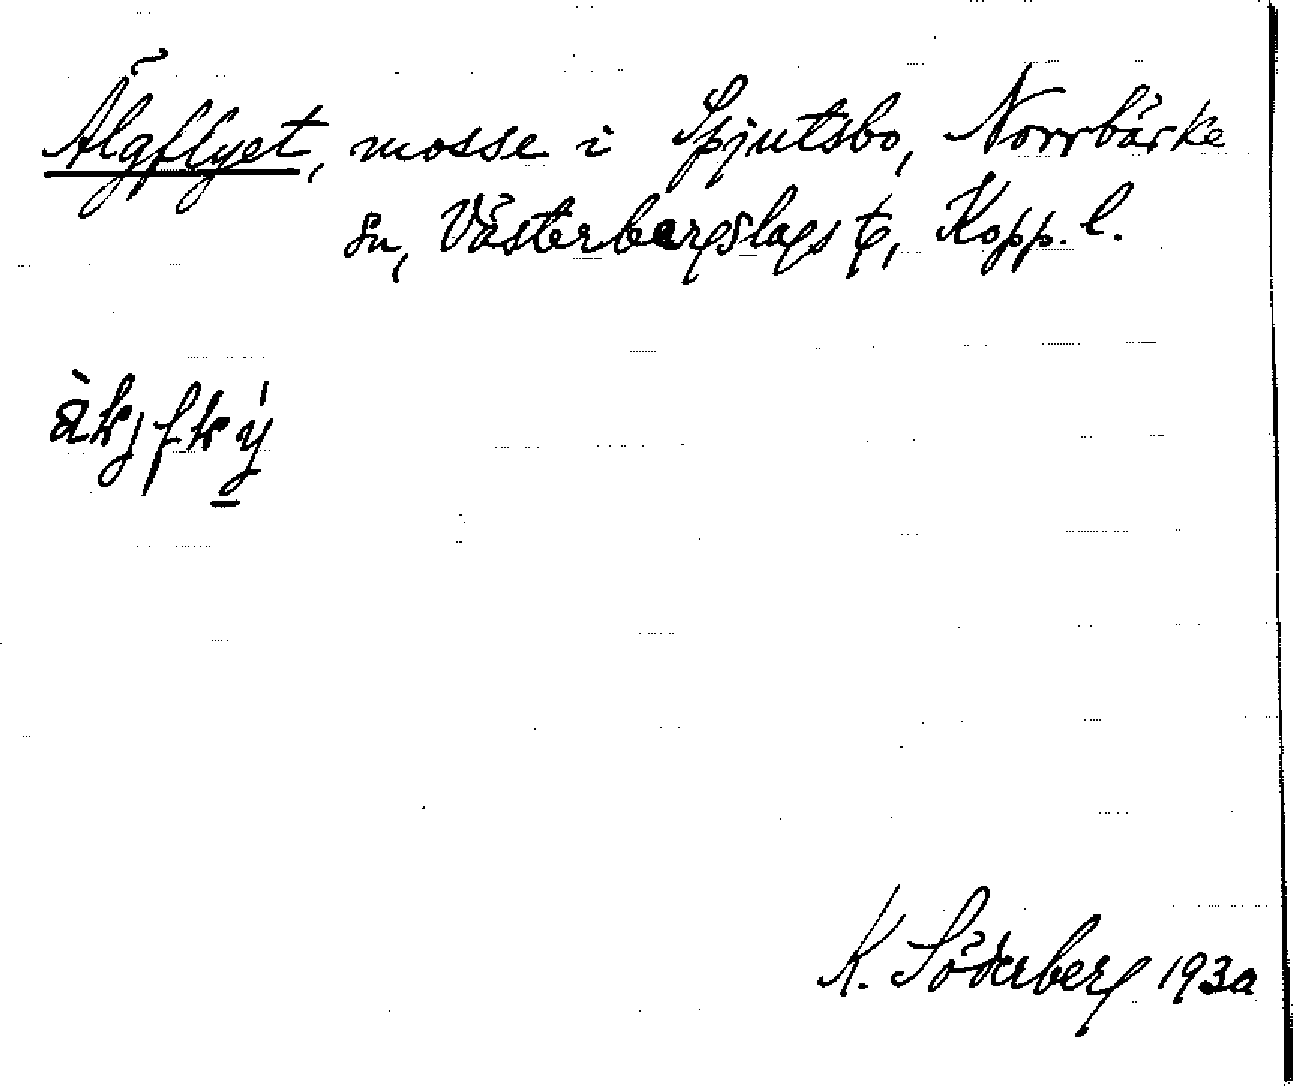 Älgflyet, mosse i Spjutsbo, Norrbärke
sn, Västerbergslags tg, Kopp. l.
K. Söderberg 1930